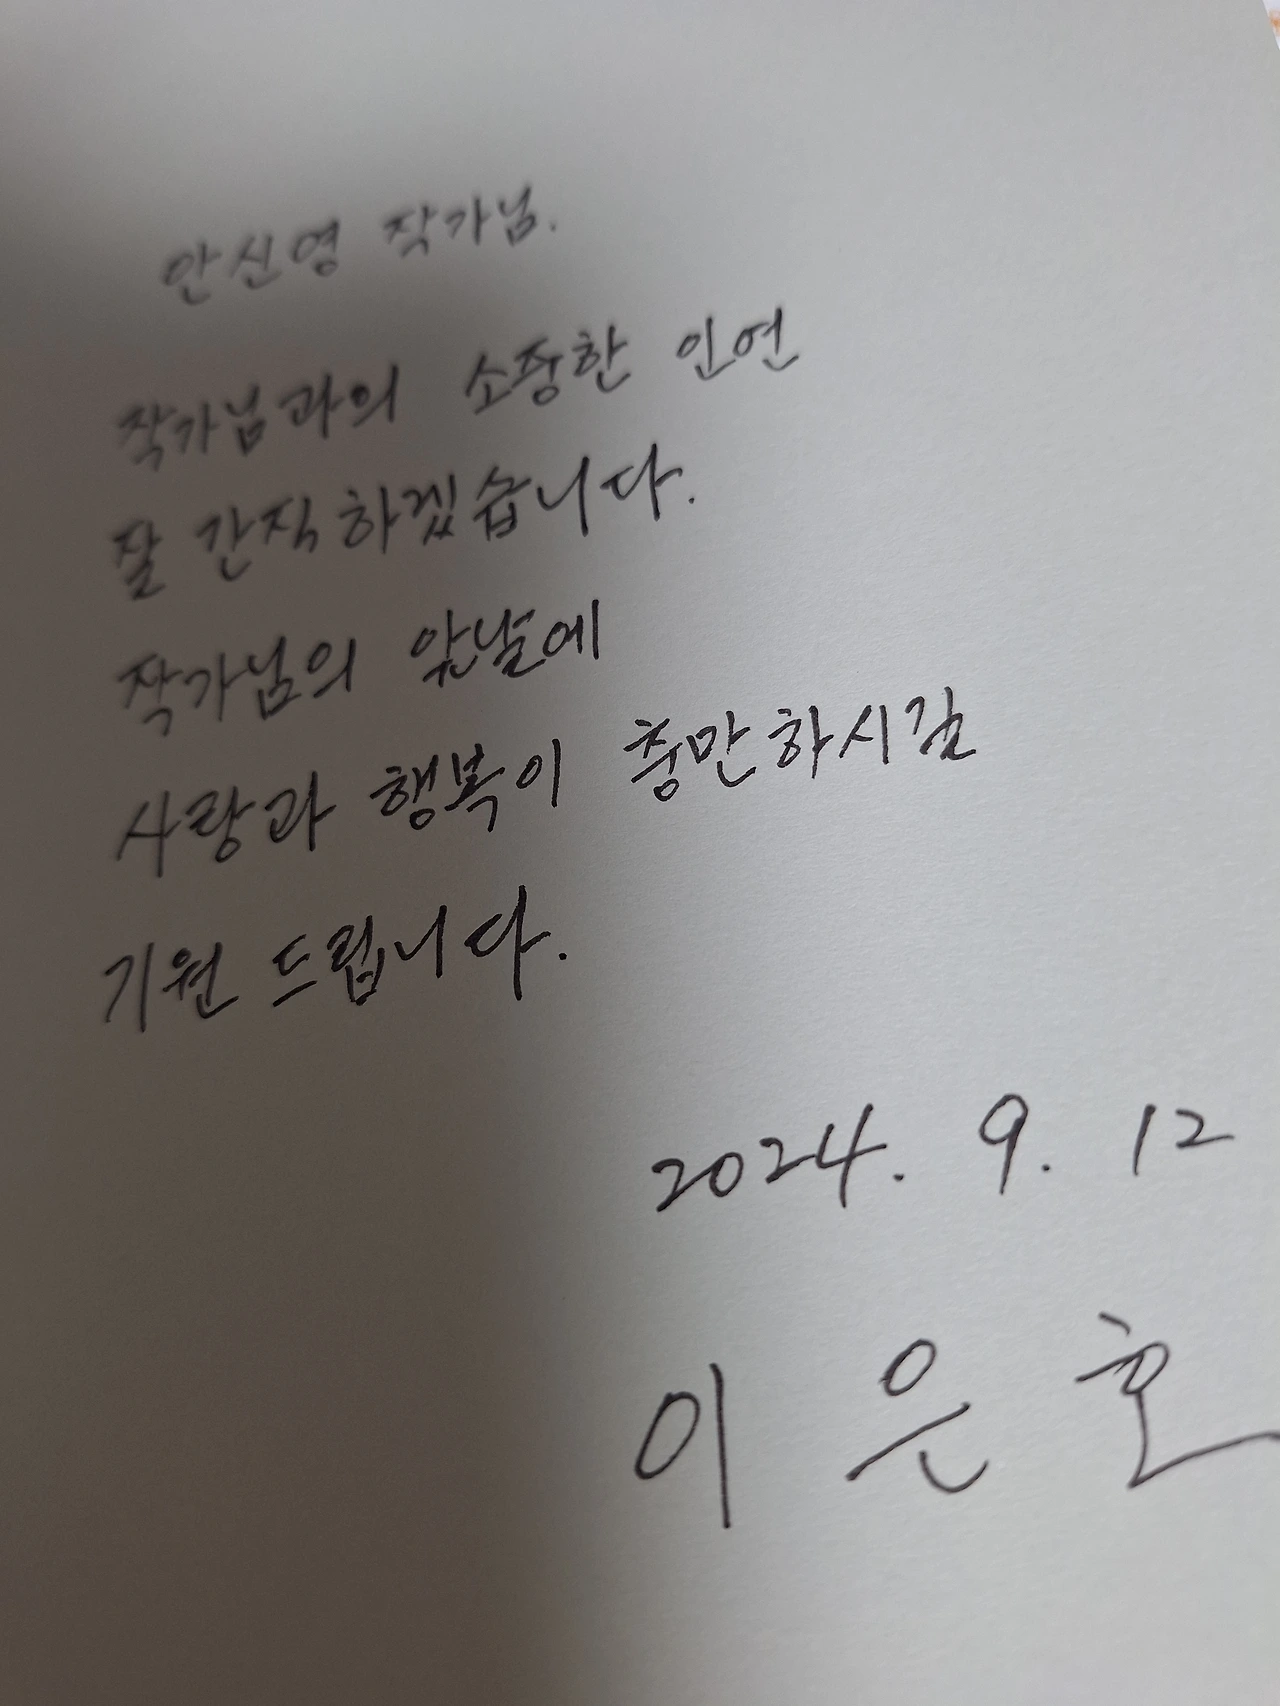 안신영 작가님.
작가님과의 소중한 인연
잘 간직하겠습니다.
작가님의 앞날에
사랑과 행복이 충만하시길
기원 드립니다.
2024. 9. 12
이은호